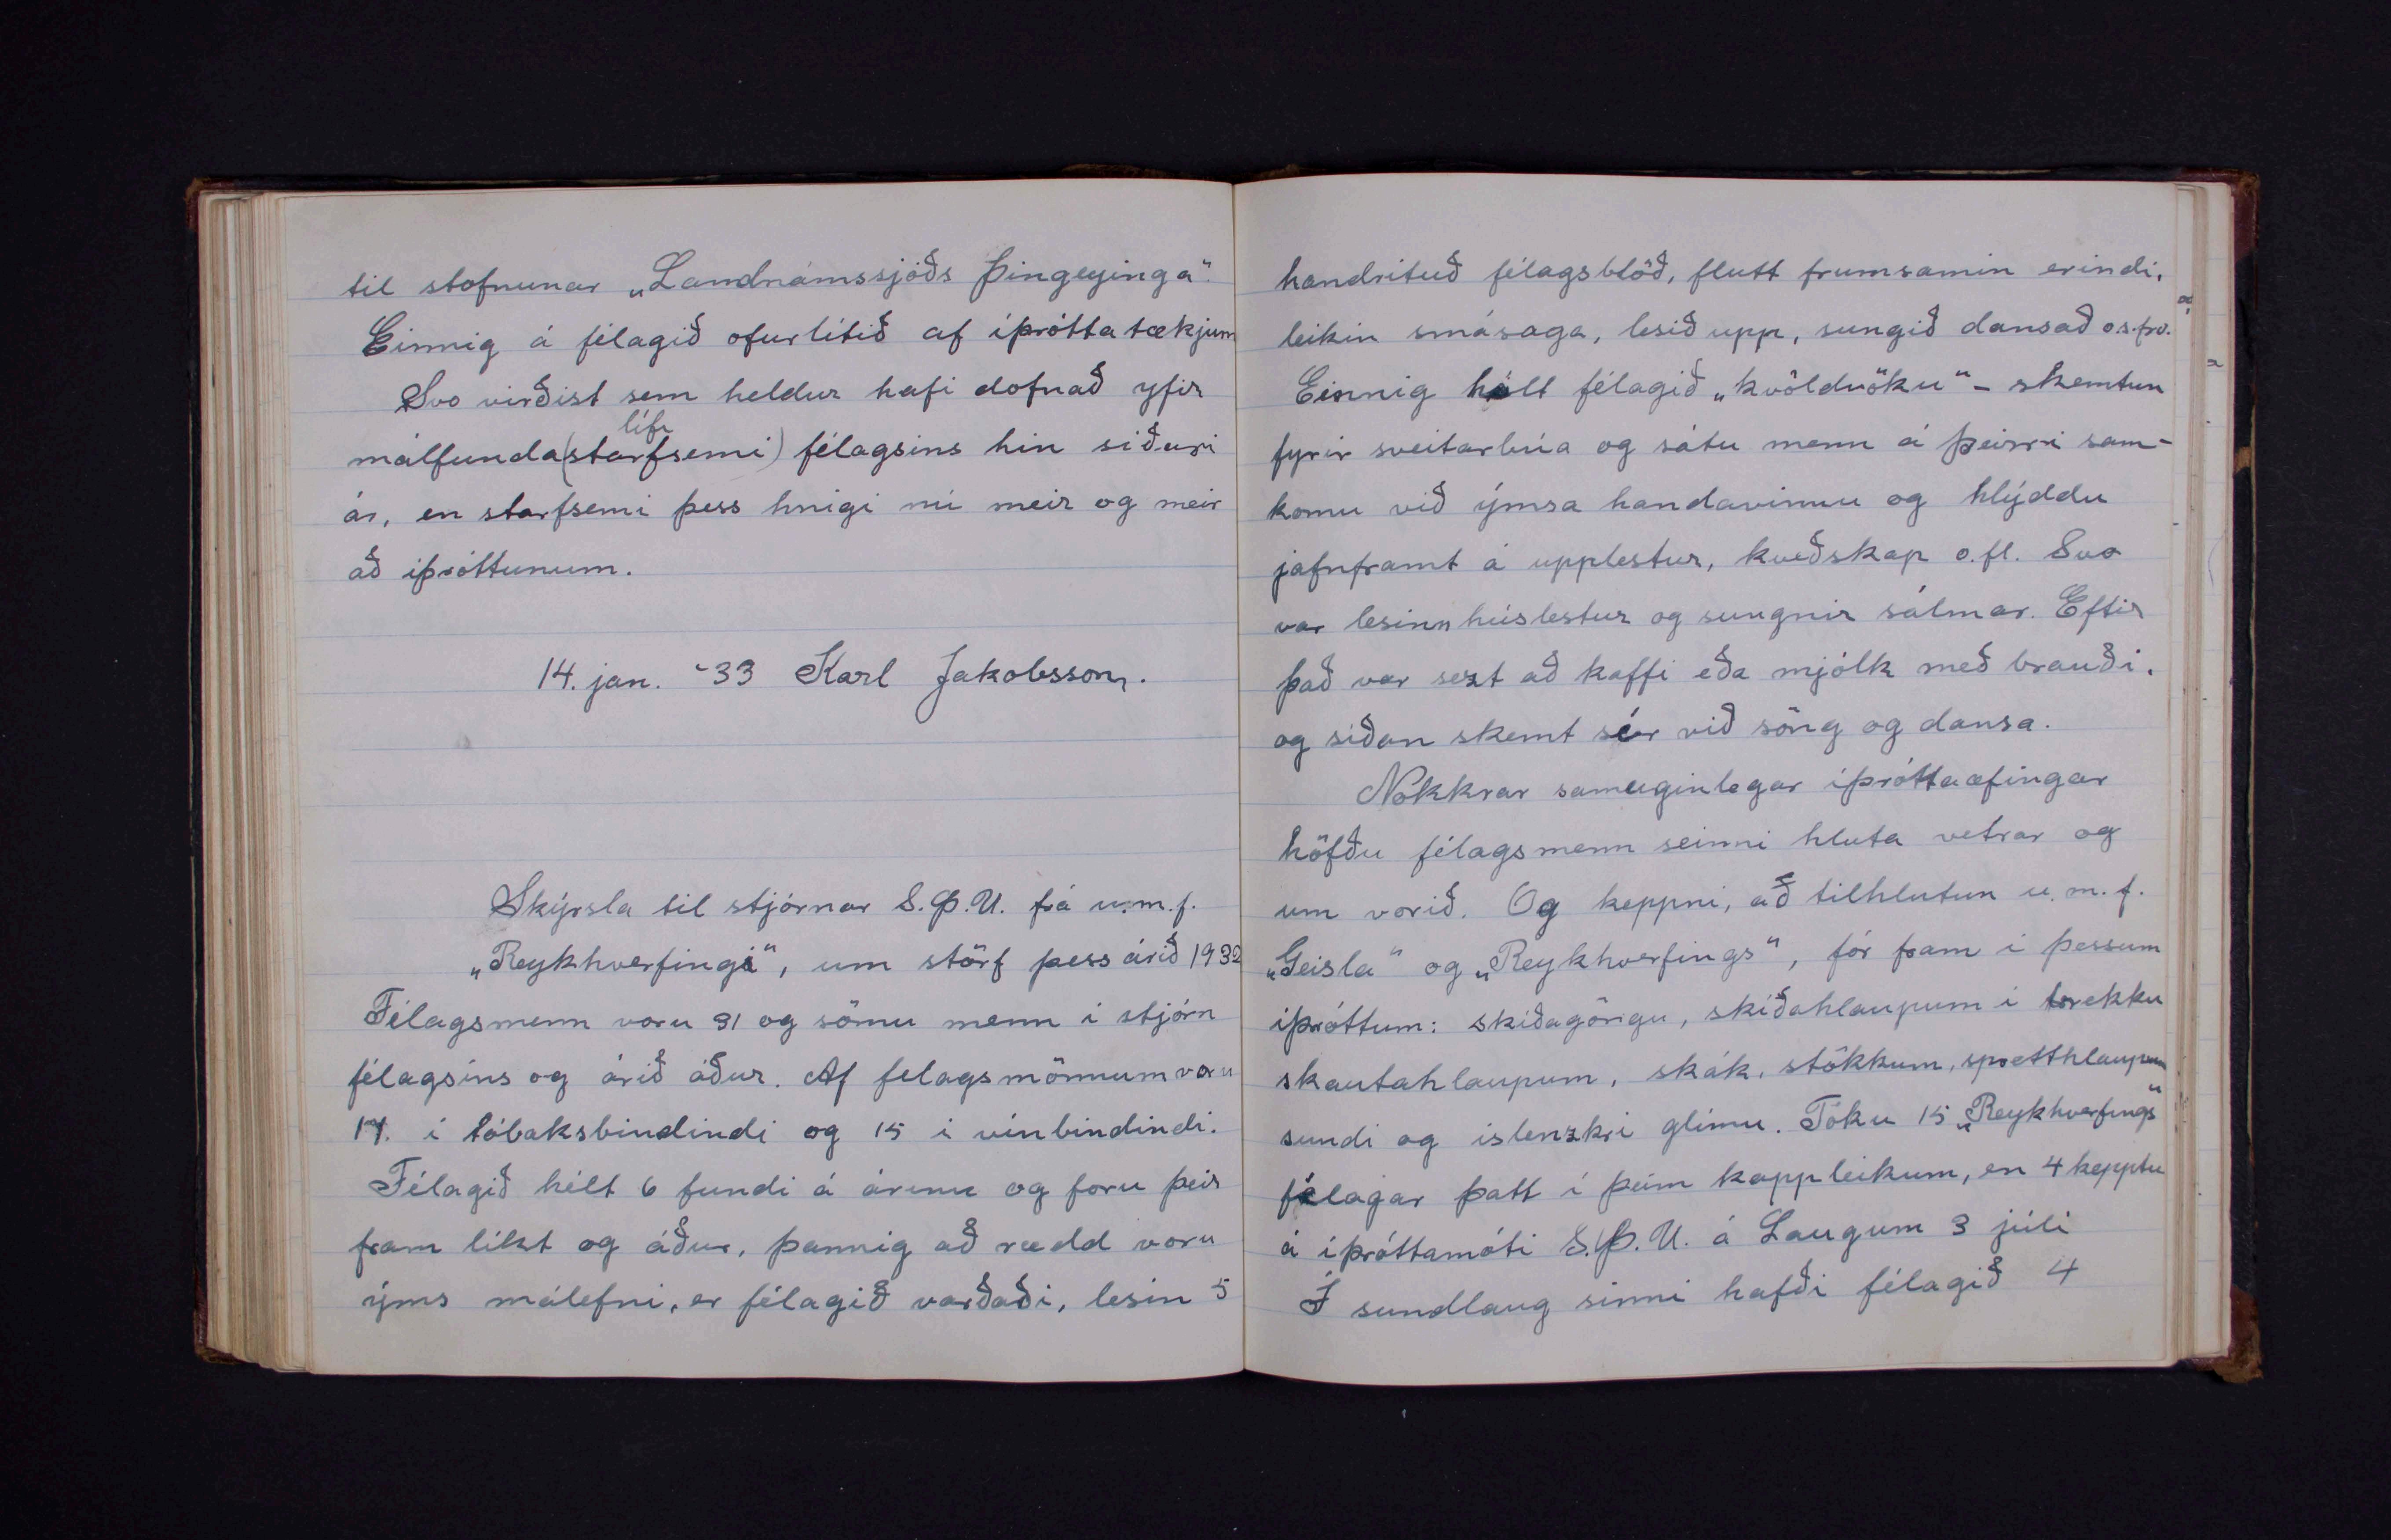 til stofnunar „Landnámssjóðs Þingeyinga".
Einnig á félagið ofurlítið af íþrótta tækjum
Svo virðist sem heldur hafi dofnað yfir
lífi
málfunda(starfsemi) félagsins hin síðari
ár, en starfsemi þess hnígi nú meir og meir
að íþróttunum.
14. jan. '33 Karl Jakobsson.
Skýrsla til stjórnar S.Þ.U. frá u.m.f.
„Reykhverfingi", um störf þess árið 1932
Félagsmenn voru 31 og sömu menn í stjórn
félagsins og árið áður. Af felagsmönnum voru
17. í tóbaksbindindi og 15 í vínbindindi.
Félagið hélt 6 fundi á árinu og foru þeir
fram líkt og áður, þannig að rædd voru
ýms málefni, er félagið varðaði, lesin 5
handrituð félagsblöð, flutt frumsamin erindi,
leikin smásaga, lesið upp, sungið dansað o.s.frv.
Einnig hélt félagið „kvöldvöku" - skemtun
fyrir sveitarbúa og sátu menn á þeirri sam-
komu við ýmsa handavinnu og hlýddu
jafnframt á upplestur, kveðskap o.fl. Svo
var lesinn húslestur og sungnir sálmar. Eftir
það var sezt að kaffi eða mjólk með brauði.
og síðan skemt sér við söng og dansa.
Nokkrar sameiginlegar íþróttaæfingar
höfðu félagsmenn seinni hluta vetrar og
um vorið. Og keppni, að tilhlutun u.m.f.
„Geisla" og „Reykhverfings", fór fram í þessum
íþróttum: skíðagöngu, skíðahlaupum í brekku
skautahlaupum, skák, stökkum, spretthlaupum
sundi og íslenzkri glímu. Tóku 15 „Reykhverfings"
félagar þatt í þeim kappleikum, en 4 kepptu
á íþróttamóti S.Þ.U. á Laugum 3 júlí
Í sundlaug sinni hafði félagið 4